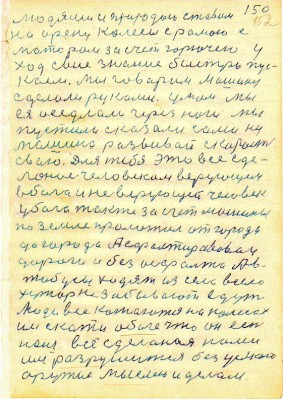 150
152
людями и природою ставим
на арену Колеси с рамою с
мотором за счет горючего у
ход свое знание быстро пус-
каем. Мы говорим машину
сделали руками. умом мы
ее оседлали через ноги мы
пустили сказали сами ну
машина развивай скорость
свою. Для тебя это все сде-
ланое человеком верующим
в бога и не верующей человек
у бога также за счет машины
по земле промотал от города
до города Асфактировал
дороги и без асфалта Ав-
тобусы ходят из села в село
хутор не забывают едут.
Люди все катаются на колесах
им скати бога что он есть
наш все сделаная нами
им разрушится без умного
оружие мыслею и делом.